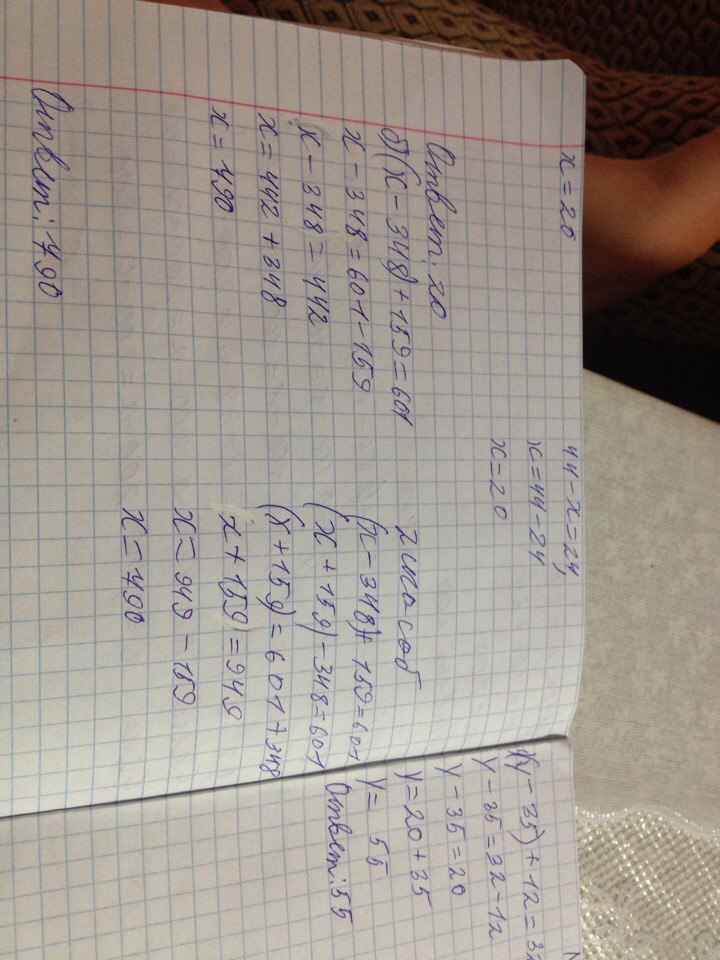 x = 20
Ответ: 20
б) (x - 348) + 159 = 601
x - 348 = 601 - 159
x - 348 = 442
x = 442 + 348
x = 790
Ответ: 790
44 - x = 24
x = 44 - 24
x = 20
2 способ
(x - 348) + 159 = 601
(x + 159) - 348 = 601
(x + 159) = 601 + 348
x + 159 = 949
x = 949 - 159
x = 790
(y - 35) + 12 = 32
y - 35 = 32 - 12
y - 35 = 20
y = 20 + 35
y = 55
Ответ: 55